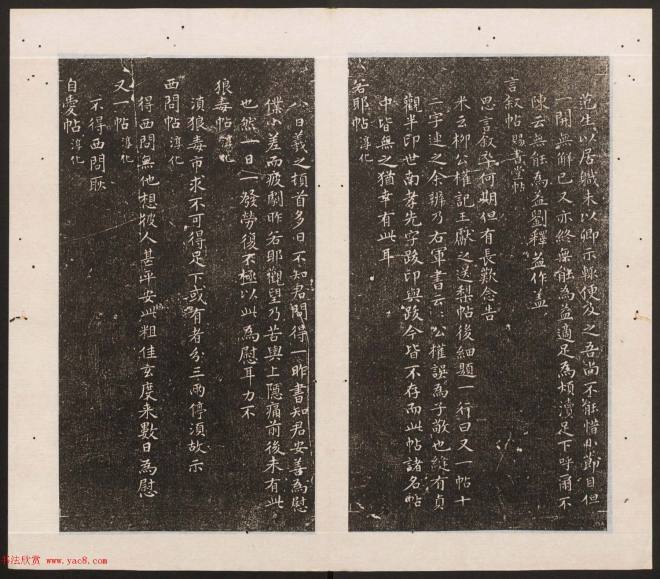 范生以居職未以卿示蘇使及之吾尚不能惜小節目但
一開無解已又亦終無能為益適足為煩瀆足下呼爾不
陳云無能為益劉釋益作盖
言叙帖 賜書堂帖
思言叙卒何期但有長歎念告
米云柳公權記王獻之送梨帖後細題一行曰又一帖十
二字連之余辨乃右軍書云云公權誤為子敬也縫有貞
觀半印世南孝先字跋印與跋今皆不存而此帖諸名帖
中皆無之猶幸有此耳
若耶帖 淳化
八日羲之頓首多日不知君問得一昨書知君安善為慰
僕小差而疲劇昨若耶觀望乃苦輿上隱痛前後未有此
也然一日一發勞復不極以此為慰耳力不
狼毒帖 淳化
湏狼毒市求不可得足下或有者分三兩停湏故示
西問帖 淳化
得西問無他想彼人甚平安此粗佳玄度来數日為慰
又一帖 淳化
不得西問耿
自愛帖 淳化
书法欣赏 www.yac8.com